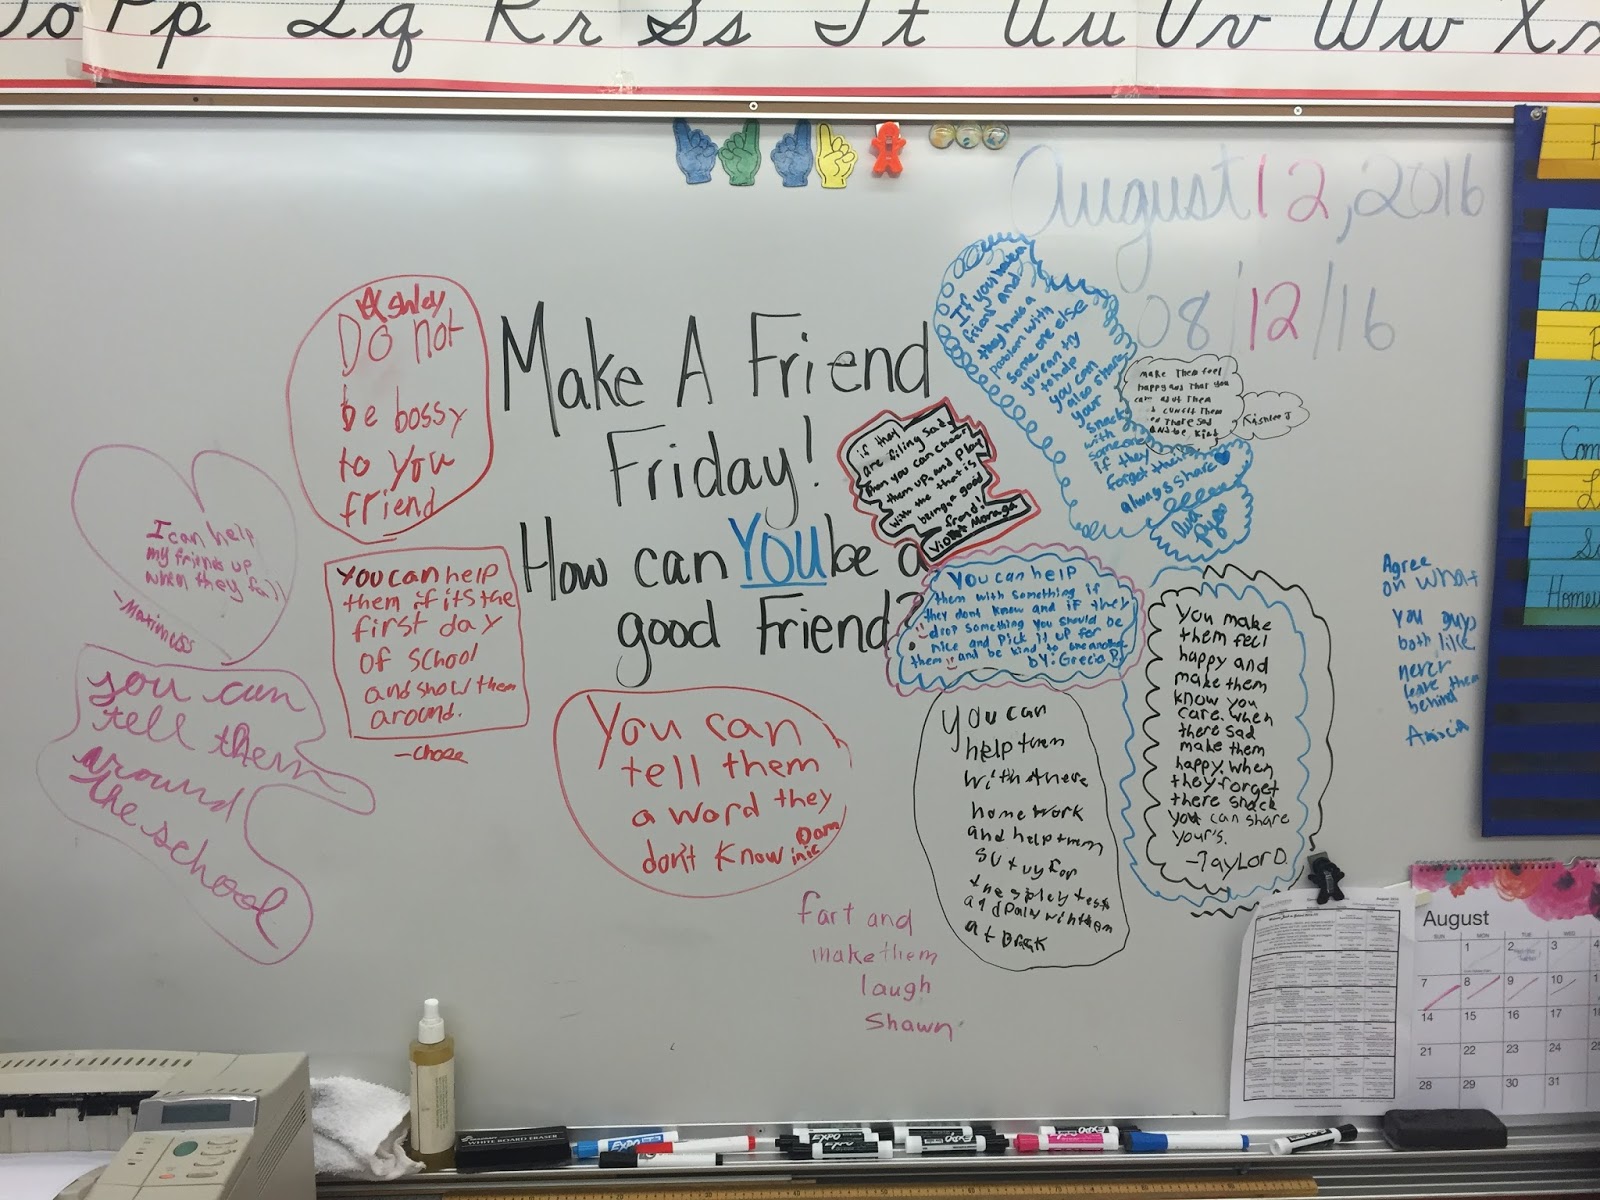 Pp Qq Rr Ss Tt Uu Vv Ww
August 12, 2016
08/12/16
Make A Friend
Friday!
How can YOU be a
good Friend?
Ashley
Do not
be bossy
to you
friend
I can help
my friends up
when they fall
you can
tell them
around
the school
You can help
them if its the
first day
of school
and show them
around.
-chose
You can
tell them
a word they
don't know
Dom
inic
fart and
make them
laugh
Shawn
if they
are filing sad
then you can cheer
them up. and play
with the that is
being a good
frend!
Violet Moraga
If you have a
friend and
they have a
problem with
some one else
you can try
to help
you can
also share
your
snack
with
someone
if they
forgot theirs
always share
make Them feel
happy and That you
care about Them
THere sad
AND be kind
You can help
them with something if
they dont know and if they
drop something you should be
nice and pick it up for
them and be kind to one another
by: Grecia R.
You can
help them
with there
home work
and help them
sutuy for
the spley test
and palw with them
at break
You make
them feel
happy and
make them
know you
care. when
there sad
make them
happy. when
they forget
there snack
you can share
your's.
-Taylor D.
Agree
on what
you guys
both like
never
leave them
behind
August
SUN MON TUE WED
1 2 3 4
7 8 9 10
14 15 16 17
21 22 23 24
28 29 30 31
WHITE BOARD ERASER
EXPO
EXPO
EXPO
EXPO
EXPO